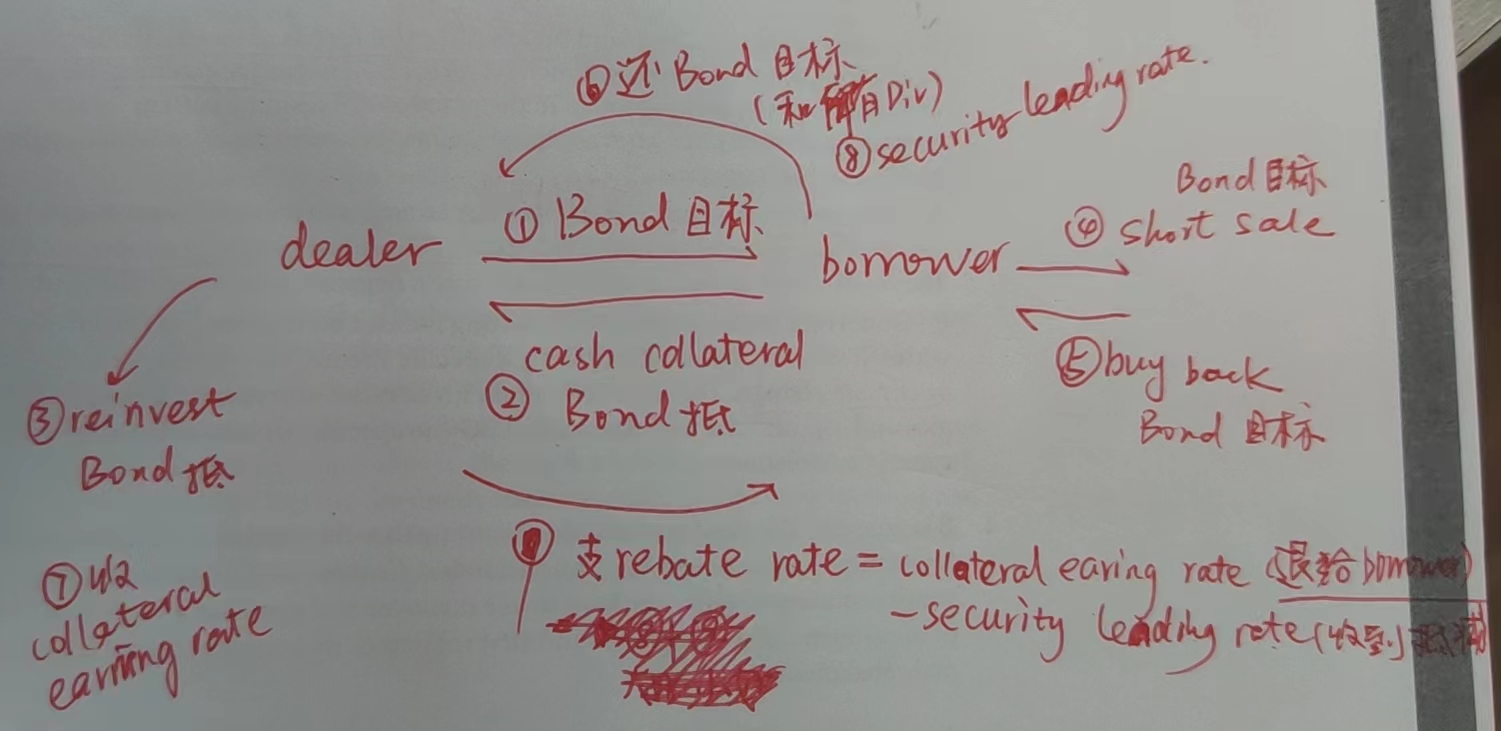 ⑥还 Bond 目标
(和所有Div)
⑧security leading rate.
① Bond 目标
dealer
borrower
Bond 目标
④ short sale
cash collateral
② Bond 抵
⑤buy back
Bond 目标
③reinvest
Bond 抵
⑦收
collateral
earning rate
支 rebate rate = collateral earing rate (退给borrower)
-security leading rate(收到)